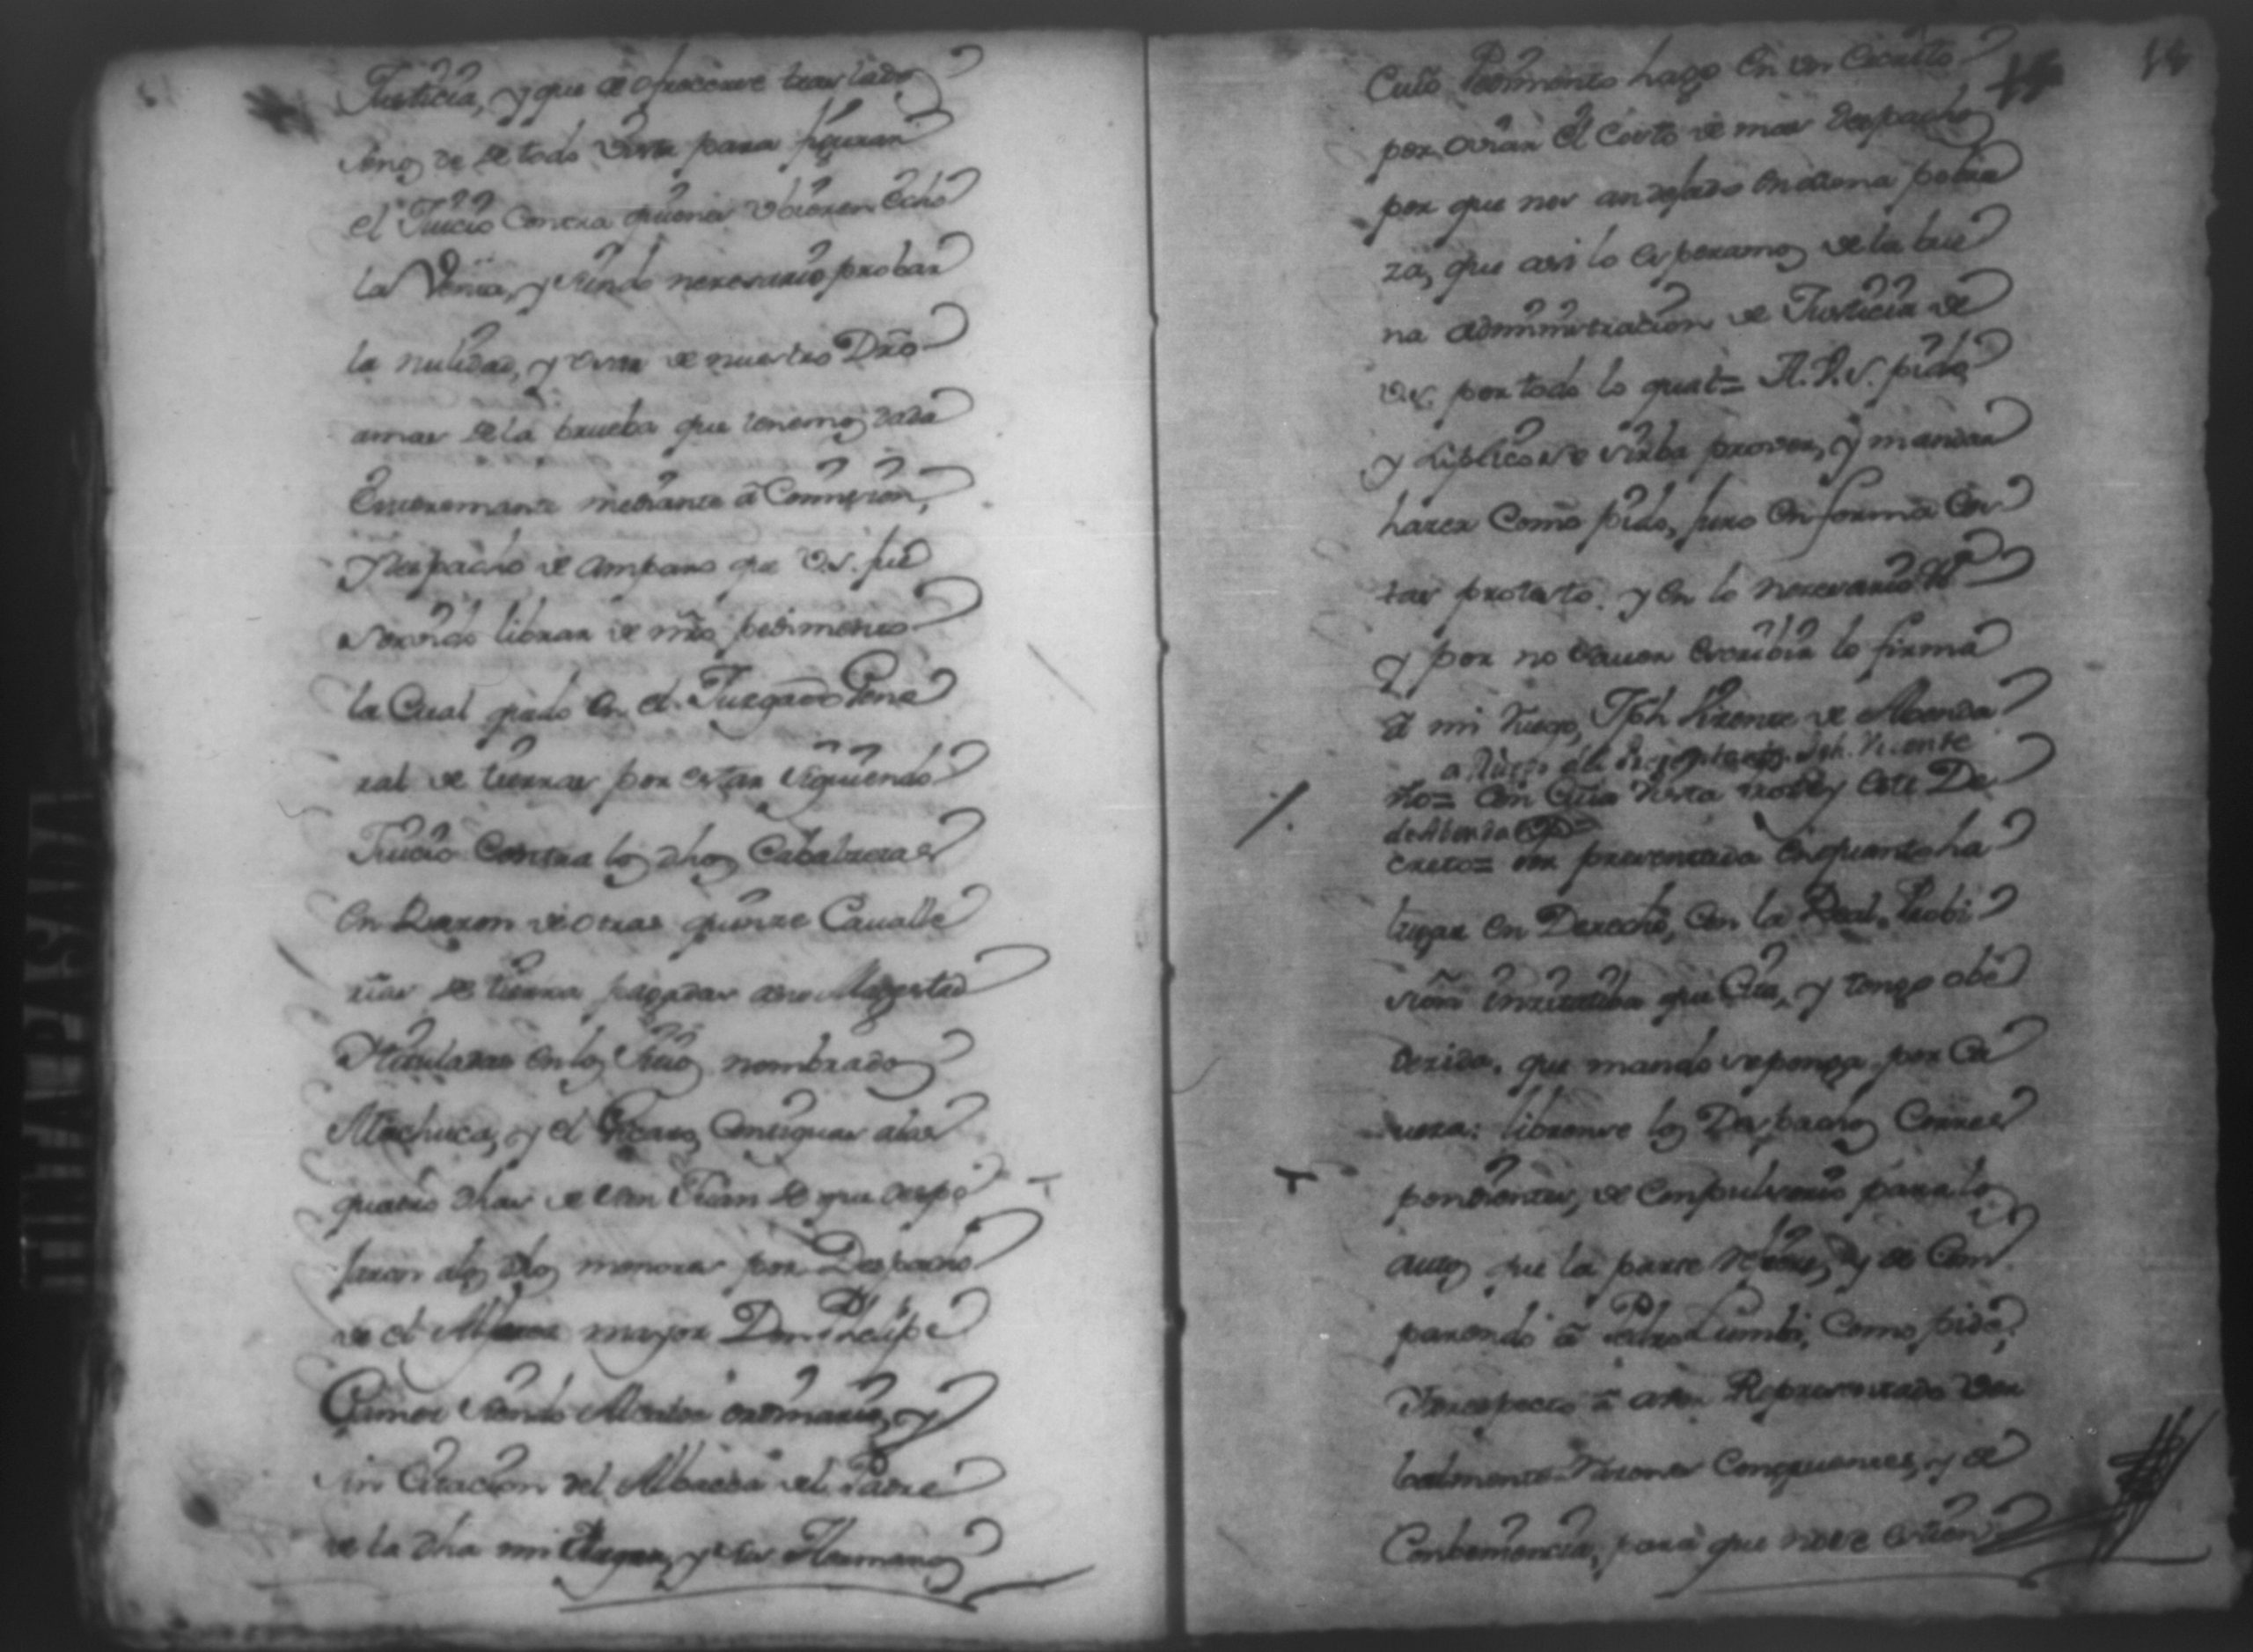 Justicia, y que de ofrecerse traslado
sino de de todo vista para siguran
el Juicio contra quienes ubieren echo
la Venta, y siendo nesesario probar
la nulidad, y usar de nuestro Dro
amas de la prueba que tenemos dada
mediante á Comision,
Despacho de amparo que V.S. fue
servido librar de mro pedimento
la Cual quedo en el Juzgado Gene
ral de tierras por estar siguiendo
Juicio Contra los dhos Cabalzetas
en Razon de otras quinze Cavalle
rias de tierra pagadas a su Magestad
tituladas en los sitios nombrados
y el contiguas alas
quatro dhas de San Juan de que despo
jaron a los dhos menores por Despacho
de el Alferez mayor Don Phelipe
Gamez siendo Alcalde ordinario, y
sin Citacion del Albacea del Padre
de la dha mi y sus Hermanos
Cuio Pedimento hago en un Escrito
por ovian el Costo de mas despacho
por que nos an dejado en suma pobre
za, que asi lo esperamos de la bue
na administracion de Justicia de
V.S. por todo lo qual= A. V.S. pido,
y suplico se sirba proveer, y mandar
hazer Como pido, juro en forma Cos
tas protesto. y en lo nesesario &a
y por no saver escribir lo firma
á mi ruego, Jph Vizente de Abenda
a Ruego de la Jph. Vicente
ño= Con Cuia vista probey este De
de Abenda
creto= por presentada en quanto ha
lugar en Derecho, Con la Real Probi
sion insitatiba que Cita, y tengo obe
dezida, que mando se ponga por Ca
vesa: librense los Despachos Corres
pondientes, de Conpulsorio para los
autos que la parte y de Com
parendo á Pedro Como pide,
Y respecto á aver Representado ver
balmente razones Congruentes, y de
Conbeniencia, para que no se